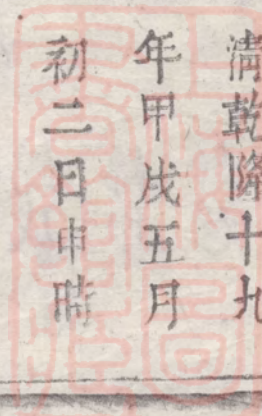 清乾隆十九
年甲戌五月
初二日申時